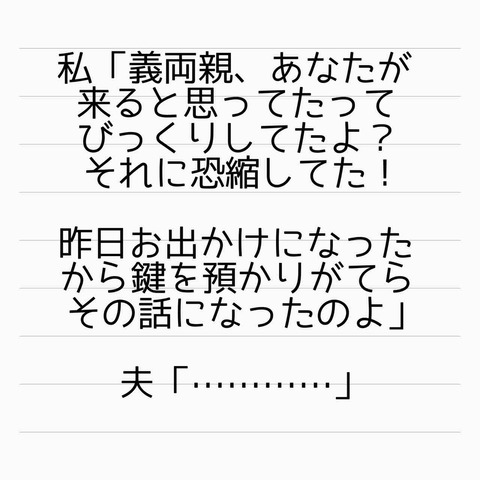 私「義両親、あなたが
来ると思ってたって
びっくりしてたよ？
それに恐縮してた！
昨日お出かけになった
から鍵を預かりがてら
その話になったのよ」
夫「…………」